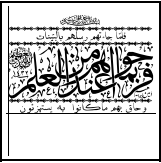 فلما جاءتهم رسلهم بالبينات
فرحوا بما عندهم من العلم
وحاق بهم ما كانوا به يستهزئون